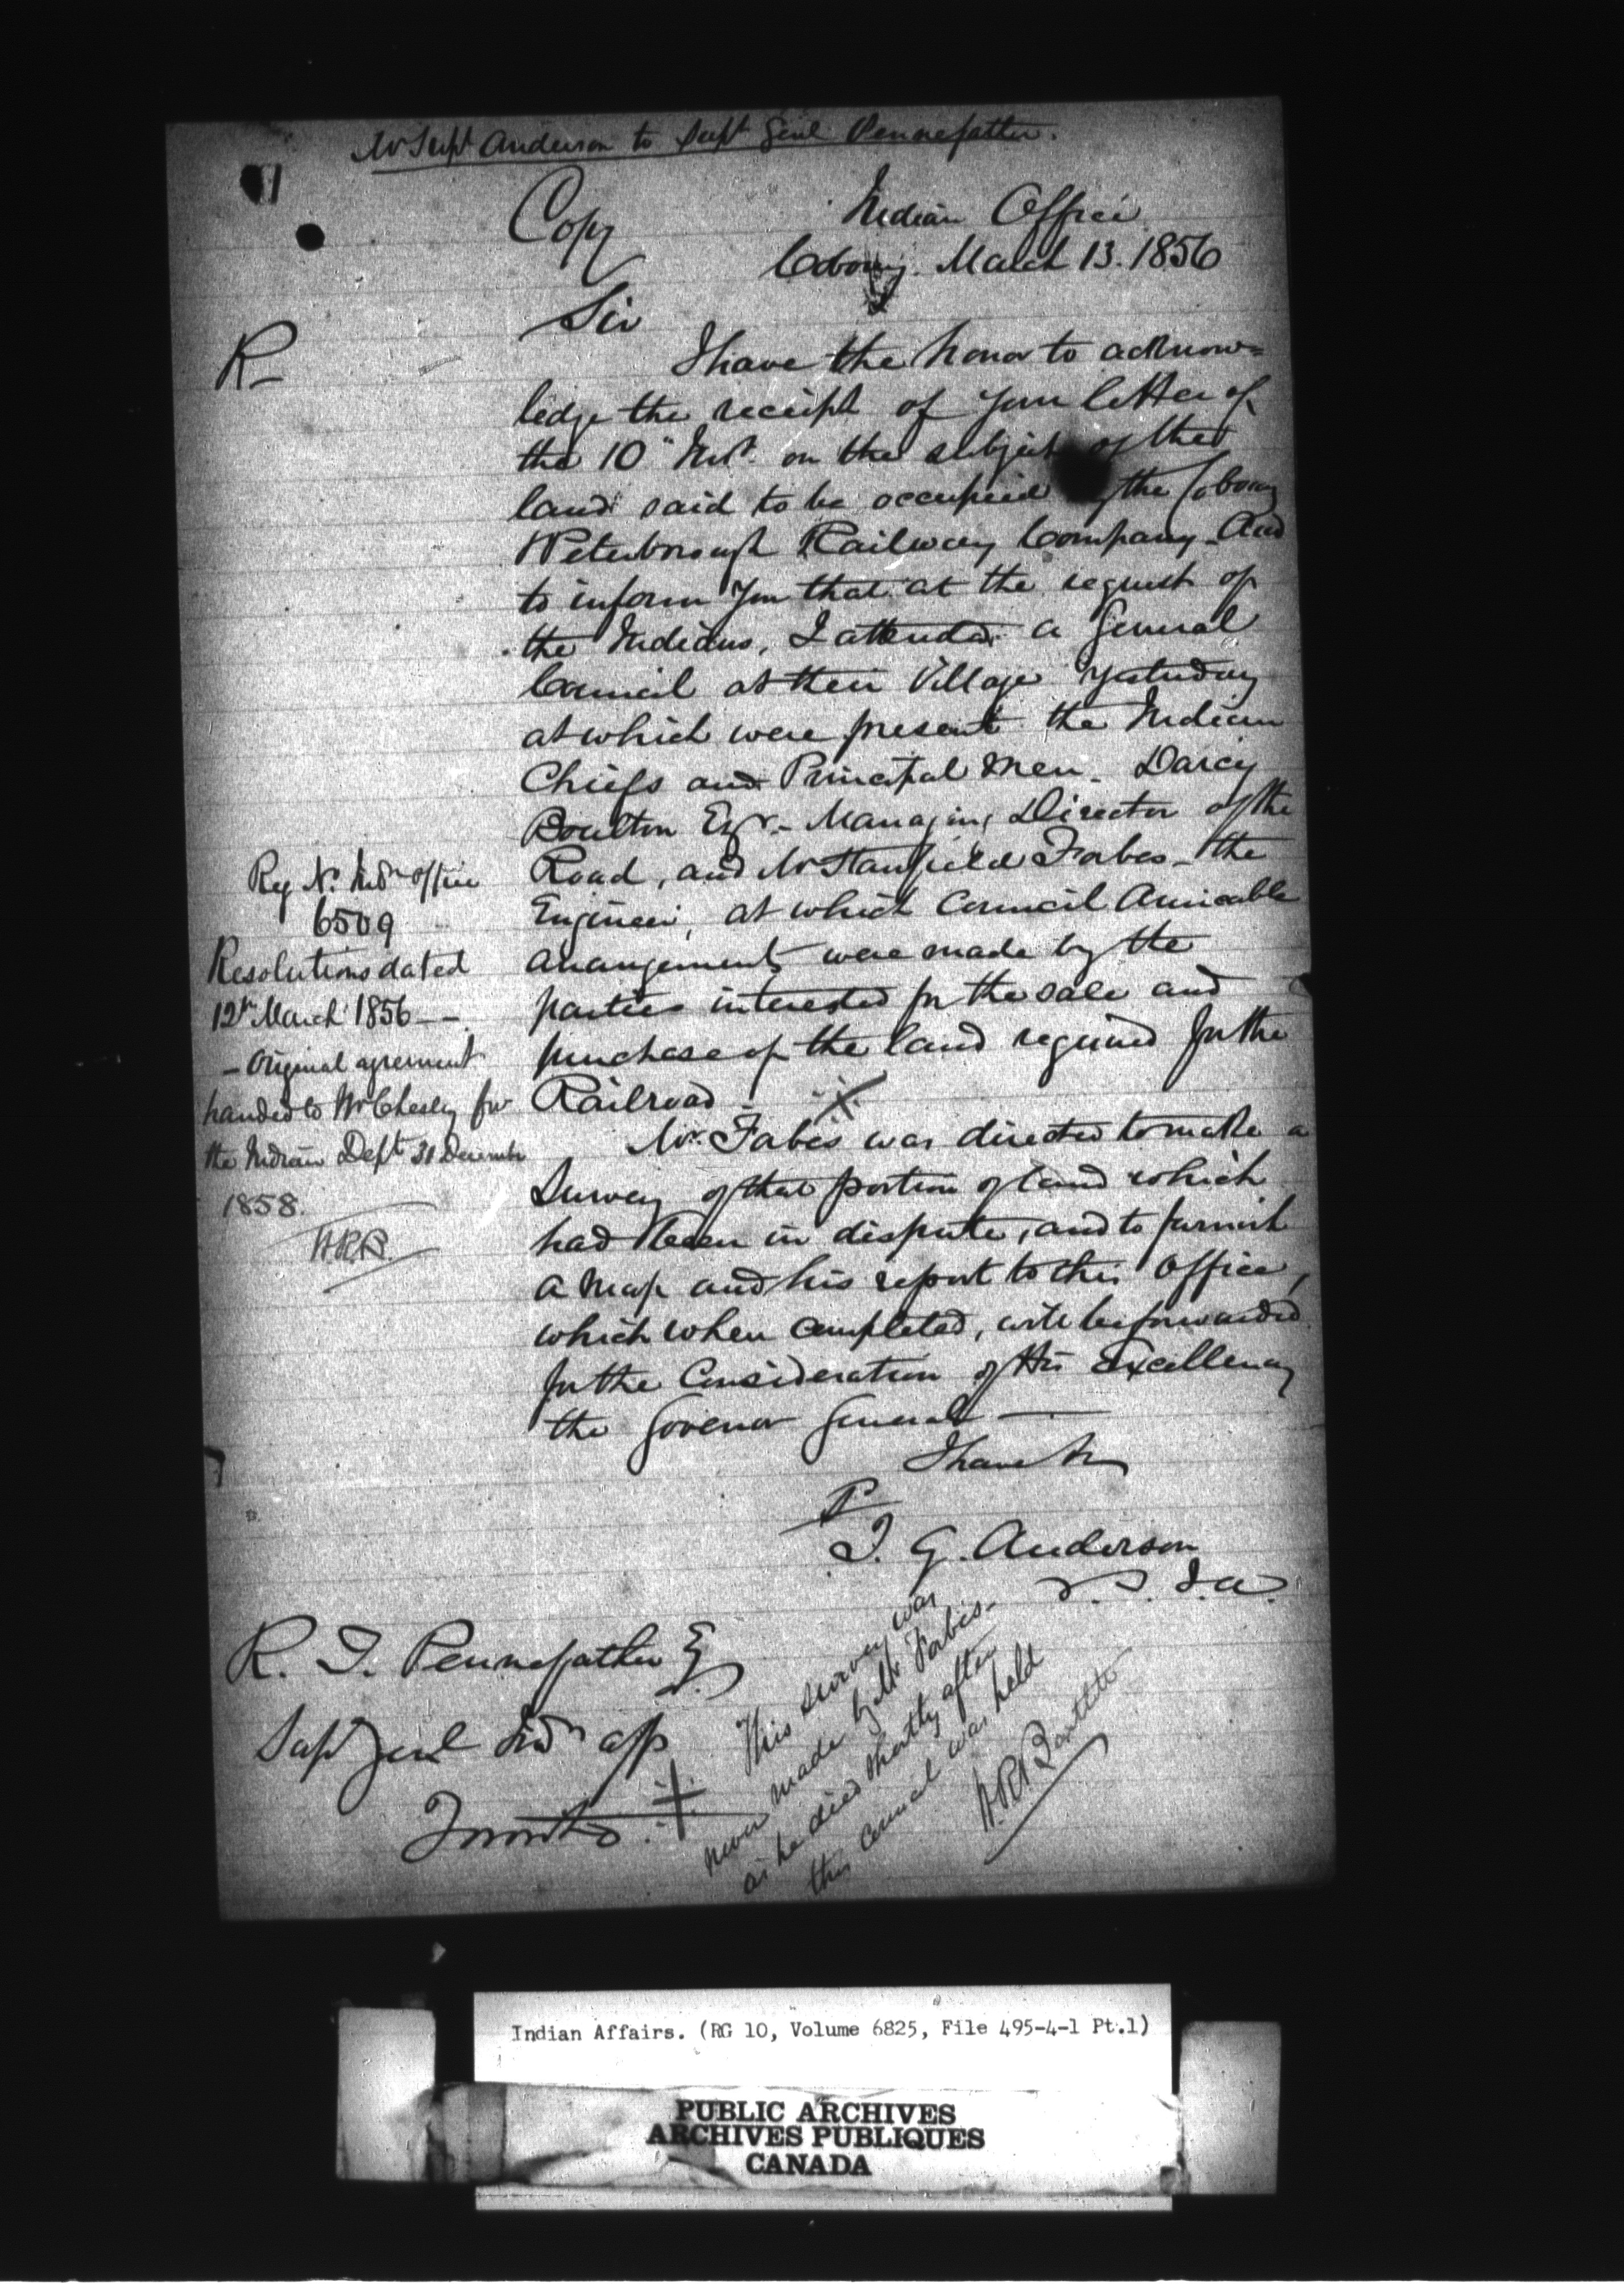 Mr Supt Anderson to Supt Genl Pennefather.
Copy
Indian Office
Cobourg. March 13. 1856
Sir
R
I have the honor to acknow=
ledge the receipt of your letter of
the 10" Inst. on the subject of the
land said to be occupied by the Cobourg
& Peterborough Railway Company. And
to inform you that at the request of
the Indians, I attended a General
Council at their Village yesterday
at which were present the Indian
Chiefs and Principal Men. Darcy
Boulton Esqr. - Managing Director of the
Road, and Mr Stanfield Forbes - the
Engineer, at which Council Amicable
arrangements were made by the
parties interested for the sale and
purchase of the land required for the
Railroad.
Mr. Forbes was directed to make a
Survey of that portion of land which
had been in dispute, and to furnish
a Map and his report to this Office,
which when completed, will be forwarded
for the Consideration of His Excellency
the Govenor General
I have &c
T. G. Anderson
S. I. A.
Reg No. Indn office
6509
Resolutions dated
12th March 1856 -
- Original agreement
handed to Mr Chesley for
the Indian Dept 31 December
1858.
W.R.B.
R. T. Pennefather Esq
Supt Genl Indn aff
Toronto.
This survey was
never made by Mr Forbes -
as he died shortly after
this council was held
W.R. Bartlett
Indian Affairs. (RG 10, Volume 6825, File 495-4-1 Pt.1)
PUBLIC ARCHIVES
ARCHIVES PUBLIQUES
CANADA